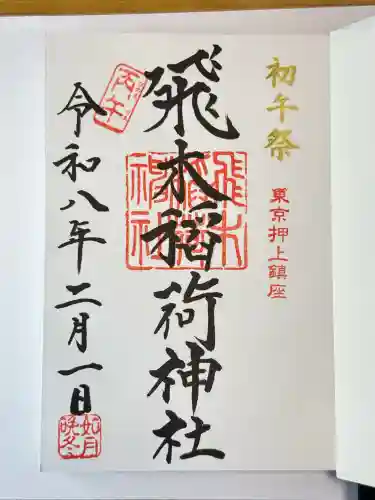 初午祭
東京押上鎮座
飛木稲荷神社
飛木稲荷神社
丙午
令和八年二月一日
如月
晩冬